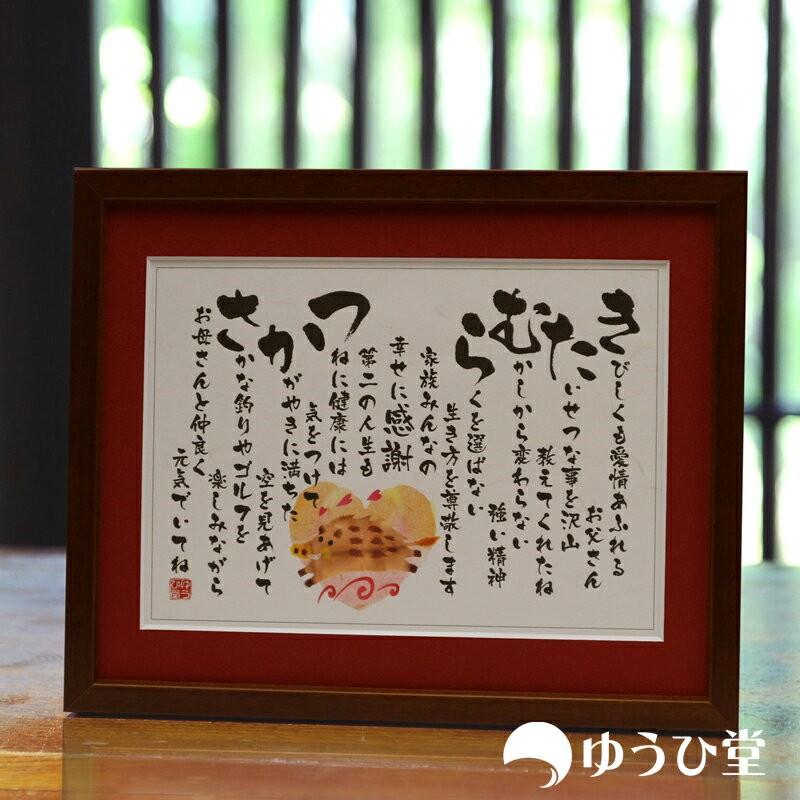 きびしくも愛情あふれる
お父さん
たいせつな事を沢山
教えてくれたね
むかしから変わらない
強い精神
らくを選ばない
生き方を尊敬します
家族みんなの
幸せに感謝
第二の人生も
つねに健康には
気をつけて
かがやきに満ちた
空を見あげて
さかな釣りやゴルフを
楽しみながら
お母さんと仲良く
元気でいてね
ゆうひ堂